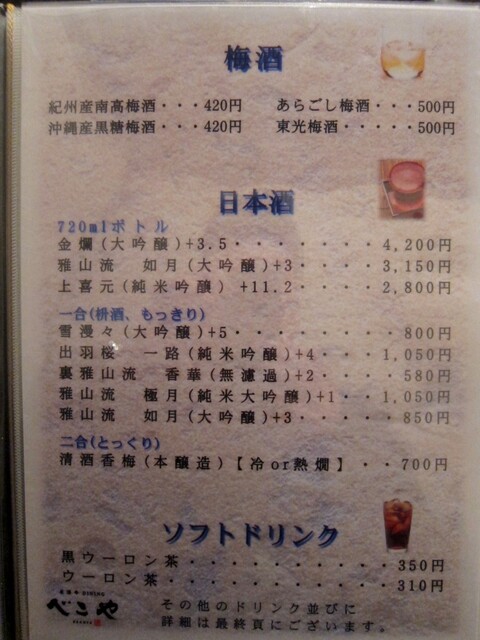 梅酒
紀州産南高梅酒・・・420円 あらごし梅酒・・・500円
沖縄産黒糖梅酒・・・420円 東光梅酒・・・・・500円
日本酒
720mlボトル
金爛(大吟醸)+3.5・・・・・・・4,200円
雅山流 如月(大吟醸)+3・・・・3,150円
上喜元(純米吟醸) +11.2・・・・2,800円
一合(枡酒、もっきり)
雪漫々(大吟醸)+5・・・・・・・・800円
出羽桜 一路(純米吟醸)+4・・・1,050円
裏雅山流 香華(無濾過)+2・・・・580円
雅山流 極月(純米大吟醸)+1・・1,050円
雅山流 如月(大吟醸)+3・・・・・850円
二合(とっくり)
清酒香梅(本醸造)【冷or熱燗】・・700円
ソフトドリンク
黒ウーロン茶・・・・・・・・・・350円
ウーロン茶・・・・・・・・・・・310円
べこや
その他のドリンク並びに
詳細は最終頁にございます。